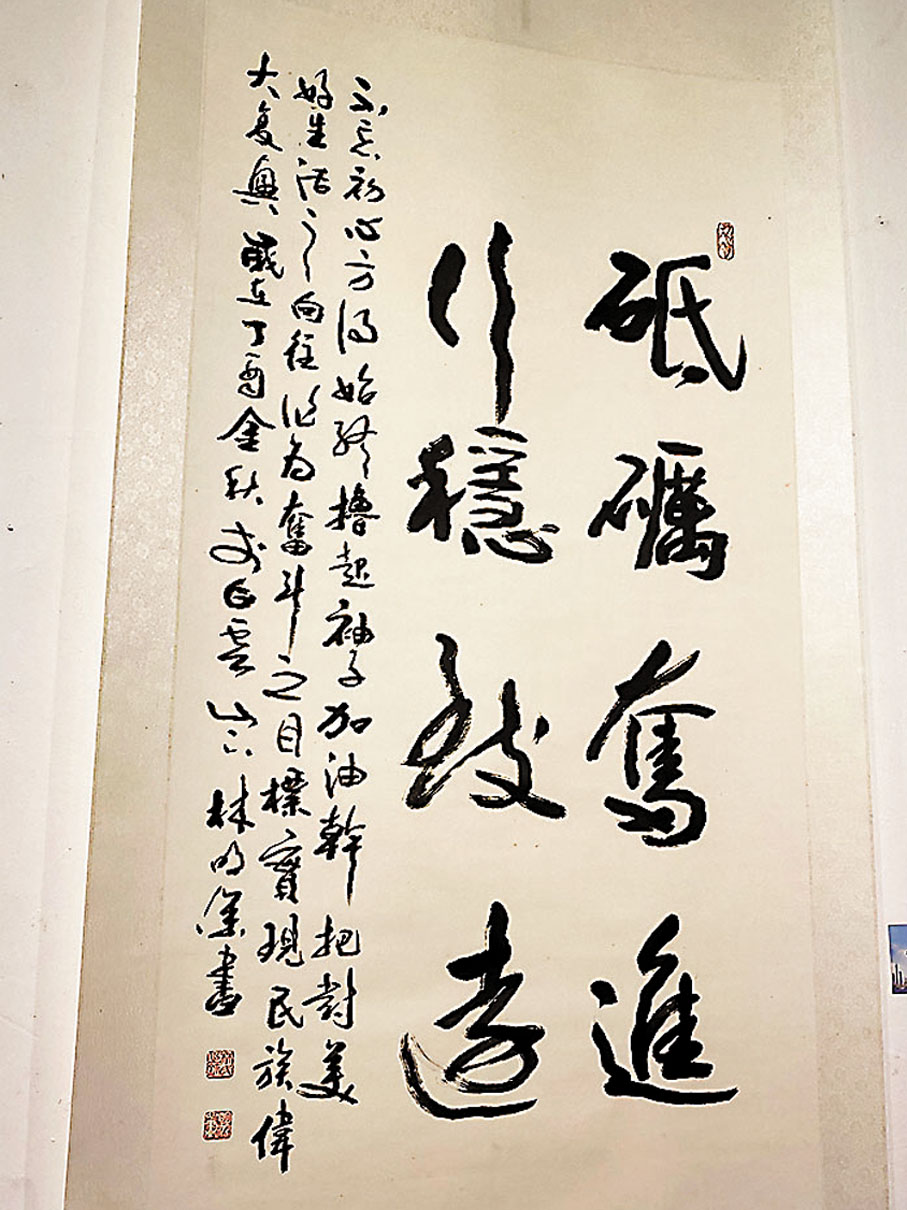 砥礪奮進
行穩致遠
不忘初心方得始終擼起袖子加油幹把對美
好生活之向往作为奮斗之目標實現民族偉
大复興歲在丁酉金秋於白雲山下林明榮書